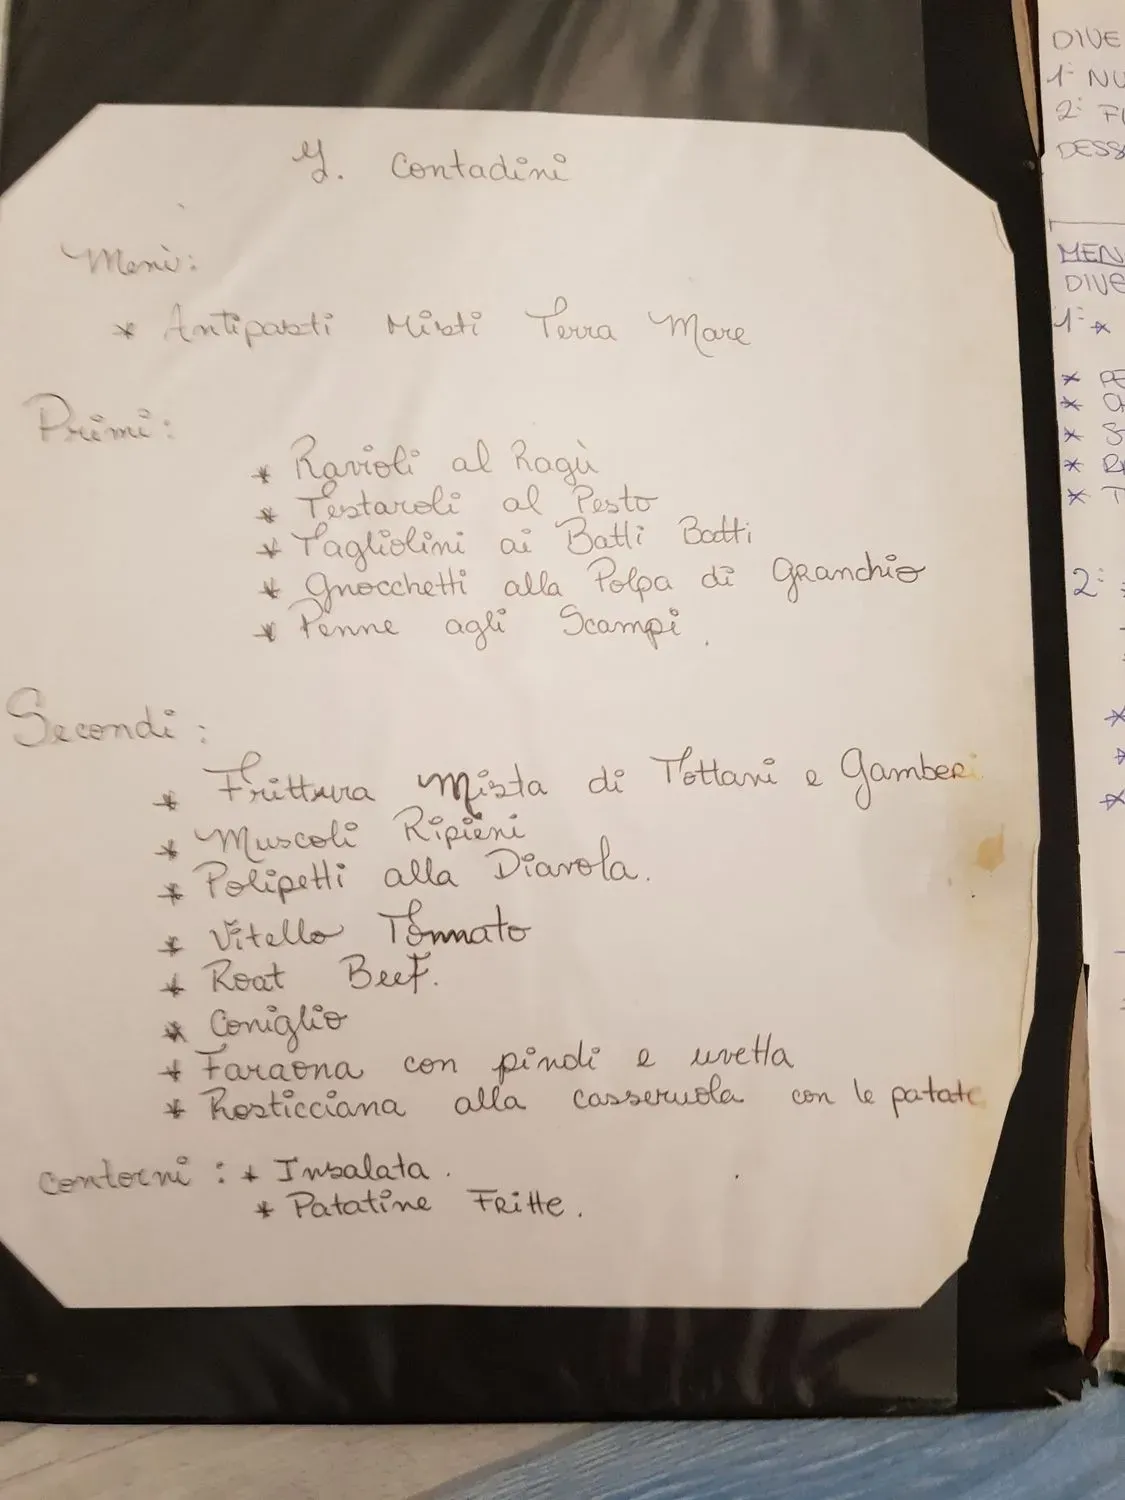 I. Contadini
Menù:
* Antipasti Misti Terra Mare
Primi:
* Ravioli al Ragù
* Testaroli al Pesto
* Tagliolini ai Batti Batti
* Gnocchetti alla Polpa di Granchio
* Penne agli Scampi.
Secondi:
* Frittura Mista di Tottani e Gamberi
* Muscoli Ripieni
* Polipetti alla Diavola.
* Vitello Tonnato
* Roat Beef.
* Coniglio
* Faraona con pindi e uvetta
* Rosticciana alla casseruola con le patate
Contorni: * Insalata.
* Patatine Fritte.
DIVE
1ⁱ NU
2ⁱ
DESS
MEN
DIVE
1ⁱ *
* PE
*
* S
*
* T
2ⁱ